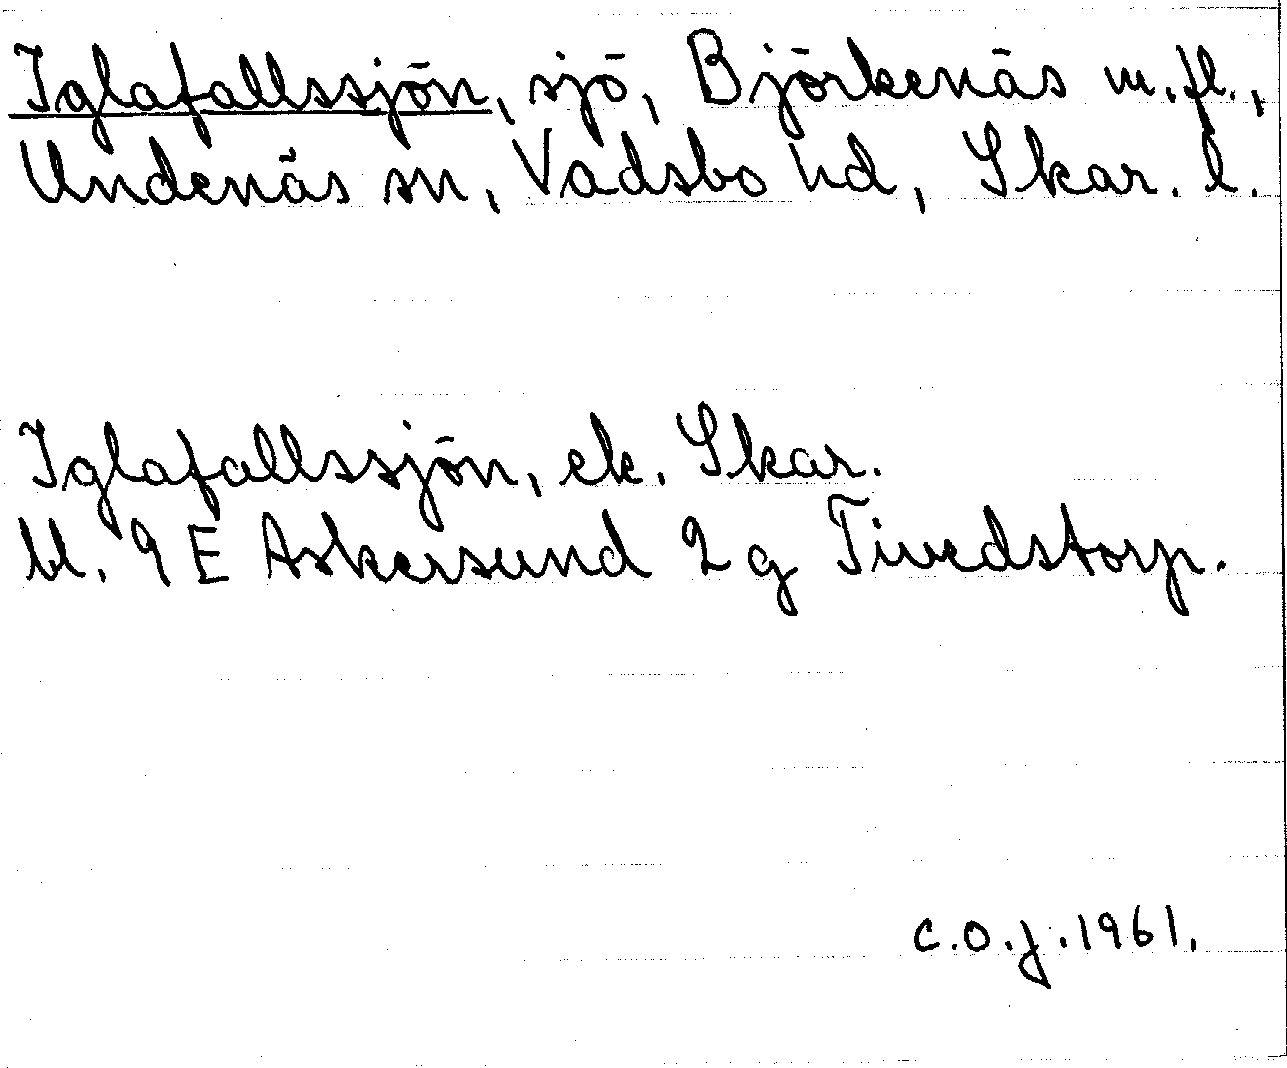 Iglafallssjön, sjö, Björkenäs m.fl.,
Undenäs sn, Vadsbo hd, Skar. l.
Iglafallssjön, ek. Skar.
bl. 9 E Askersund 2 g Tivedstorp.
C.O.J. 1961.